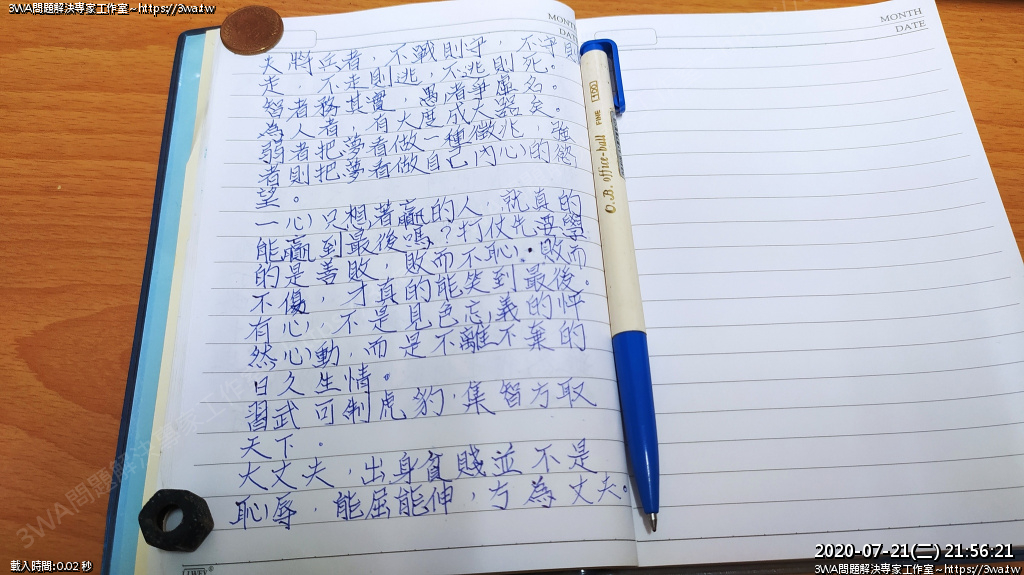 3WA問題解決專家工作室~https://3wa.tw
3WA問題解決專家工作室~https://3wa.tw
MONTH
DATE
MONTH
DATE
夫將兵者，不戰則守，不守則
走，不走則逃，不逃則死。
智者務其實，愚者爭虛名。
為人者，有大度成大器矣。
弱者把夢看做一種徵兆，強
者則把夢看做自己內心的慾
望。
一心只想著贏的人，就真的
能贏到最後嗎？打仗先要學
的是善敗，敗而不恥，敗而
不傷，才真的能笑到最後。
有心，不是見色忘義的怦
然心動，而是不離不棄的
日久生情。
習武可制虎豹，集智方取
天下。
大丈夫，出身貧賤並不是
恥辱，能屈能伸，方為丈夫。
O.B. office-ball FINE 100
3WA問題解決專家工作室
載入時間:0.02 秒
2020-07-21(二) 21:56:21
3WA問題解決專家工作室~https://3wa.tw